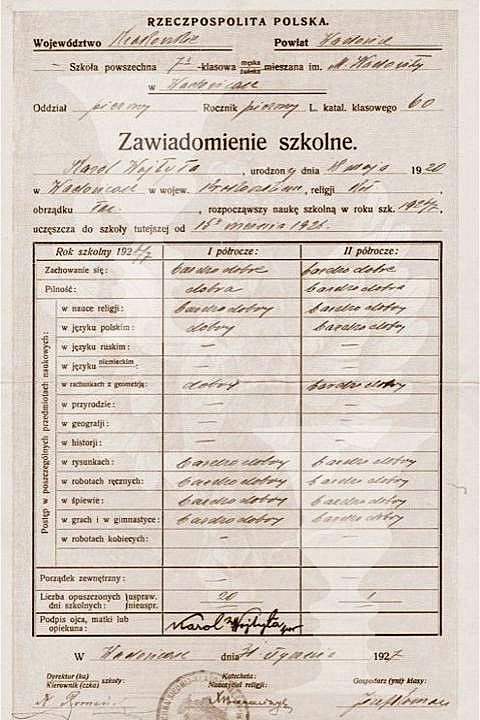 RZECZPOSPOLITA POLSKA.
Województwo Krakowskie Powiat Wadowice
— Szkoła powszechna 7ō -klasowa męska żeńska mieszana im. M. Wadowity
w Wadowicach
Oddział pierwszy Rocznik pierwszy L. katal. klasowego 60
Zawiadomienie szkolne.
Karol Wojtyła, urodzony dnia 18 maja 1920
w Wadowicach w wojew. krakowskiem, religji
obrządku łac., rozpocząwszy naukę szkolną w roku szk. 1926/7,
uczęszcza do szkoły tutejszej od 15 września 1926.
Rok szkolny 1926/7 I półrocze: II półrocze:
Zachowanie się: bardzo dobre bardzo dobre
Pilność: dobra bardzo dobra
Postęp w poszczególnych przedmiotach naukowych:
w nauce religji: bardzo dobry bardzo dobry
w języku polskim: dobry bardzo dobry
w języku ruskim: — —
w języku niemieckim: — —
w rachunkach z geometrją: dobry bardzo dobry
w przyrodzie: — —
w geografji: — —
w historji: — —
w rysunkach: bardzo dobry bardzo dobry
w robotach ręcznych: bardzo dobry bardzo dobry
w śpiewie: bardzo dobry bardzo dobry
w grach i w gimnastyce: bardzo dobry bardzo dobry
w robotach kobiecych: — —
Porządek zewnętrzny: — —
Liczba opuszczonych uspraw. 20 1
dni szkolnych: nieuspr. — —
Podpis ojca, matki lub
opiekuna: Karol Wojtyła
W Wadowicach dnia 31 1927
Dyrektor (ka) szkoły: Katecheta: Gospodarz (yni) klasy:
Kierownik (czka) Nauczyciel religji: